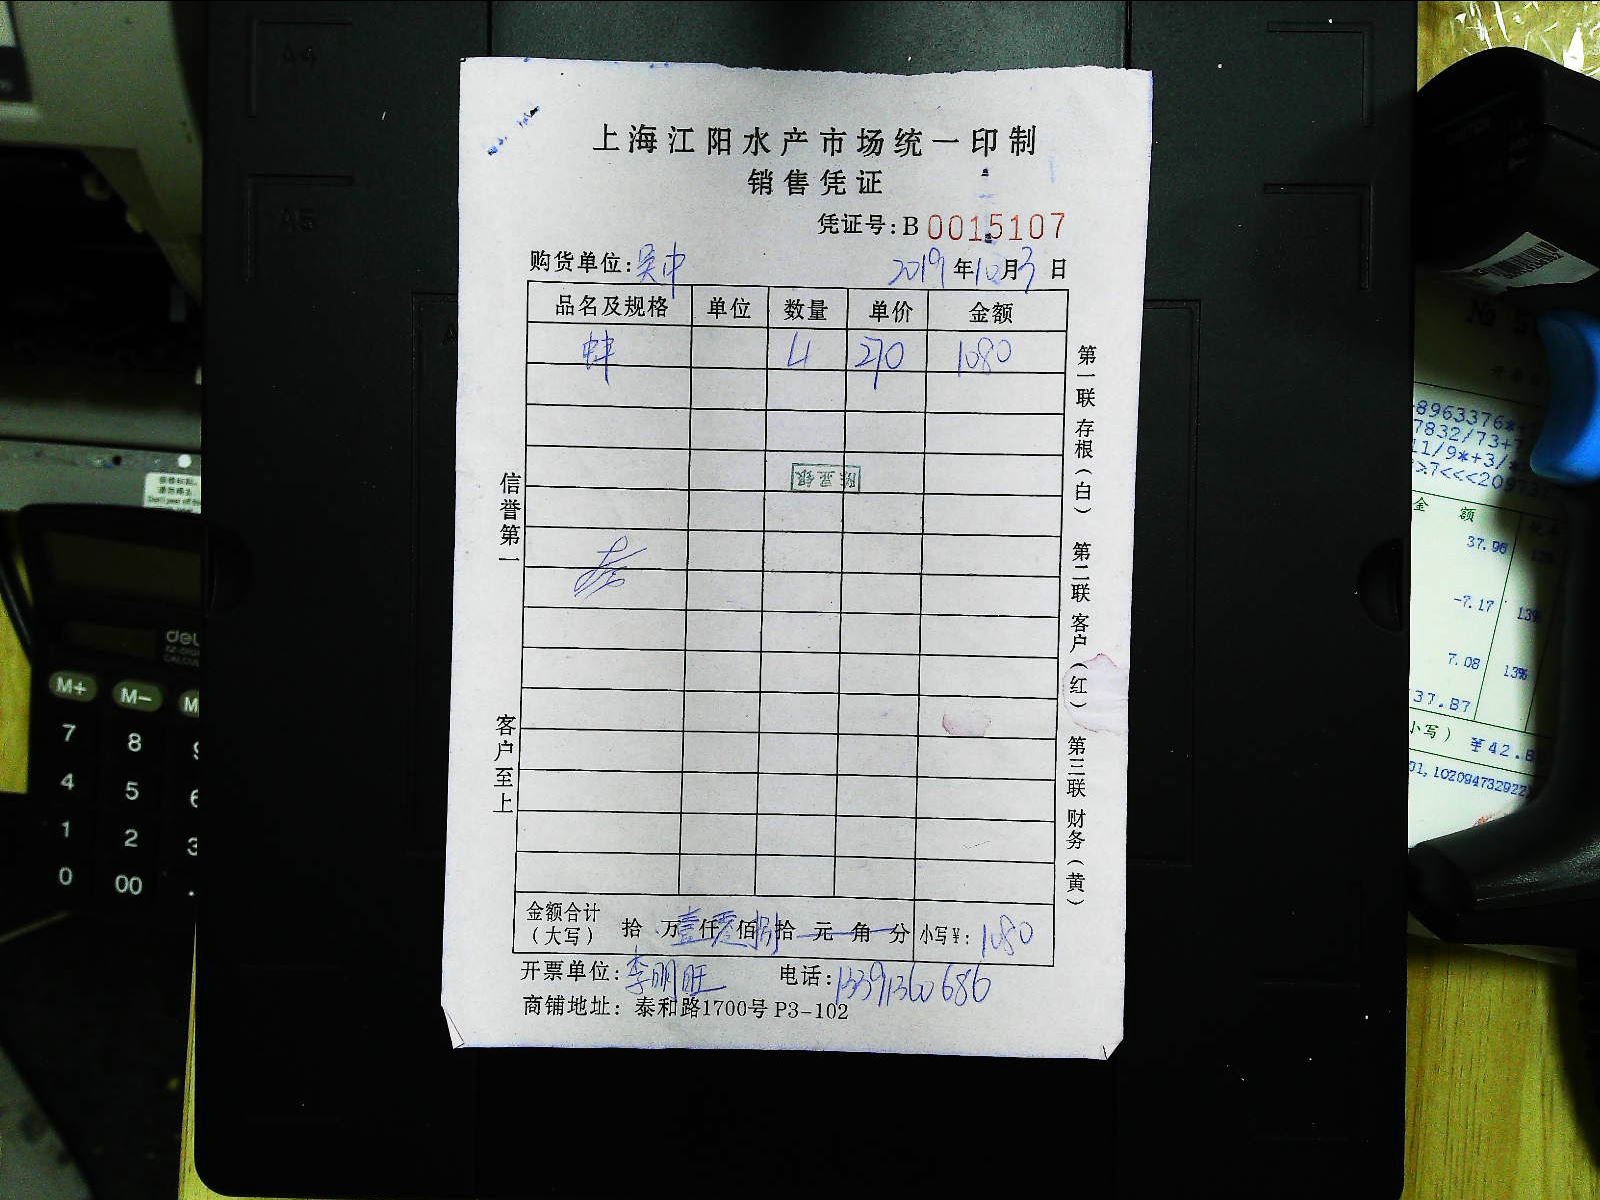 上海江阳水产市场统一印制
销售凭证
凭证号: B 0015107
购货单位: 吴中 2019 年 10 月 3 日
品名及规格 单位 数量 单价 金额
蚌 4 270 1080
陈亚银
信誉第一
客户至上
第一联 存根(白) 第二联 客户(红) 第三联 财务(黄)
金额合计(大写) 拾 万 壹 仟 零 佰 捌 拾 元 角 分 小写¥: 1080
开票单位: 李明旺 电话: 13391360686
商铺地址: 泰和路1700号 P3-102
A4
A5
deli
M+ M-
7 8 9
4 5 6
1 2 3
0 00 .
8963376*
7832/73+
11/9*+3/
>7<<<2097
金 额
37.96
-7.17 13%
7.08 13%
37.87
小写) ¥42.8
01,102094732922